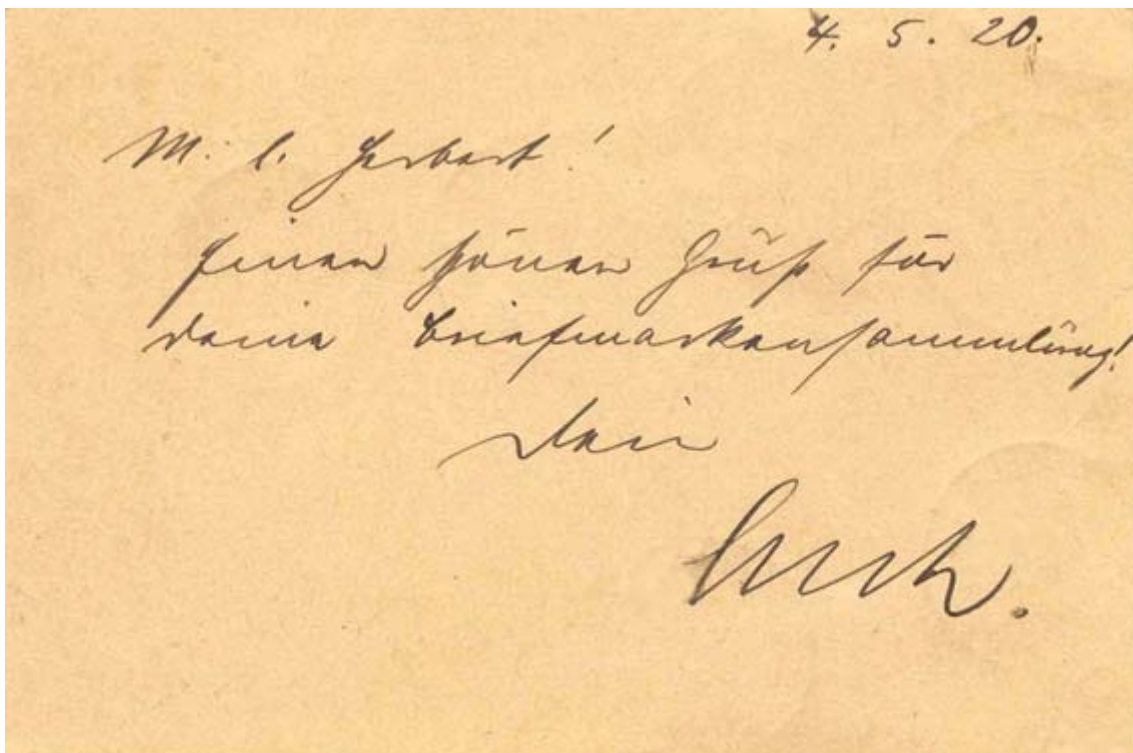 4. 5. 20.
M. l. Herbert!
Einen schönen Gruß für
deine Briefmarkensammlung!
Dein